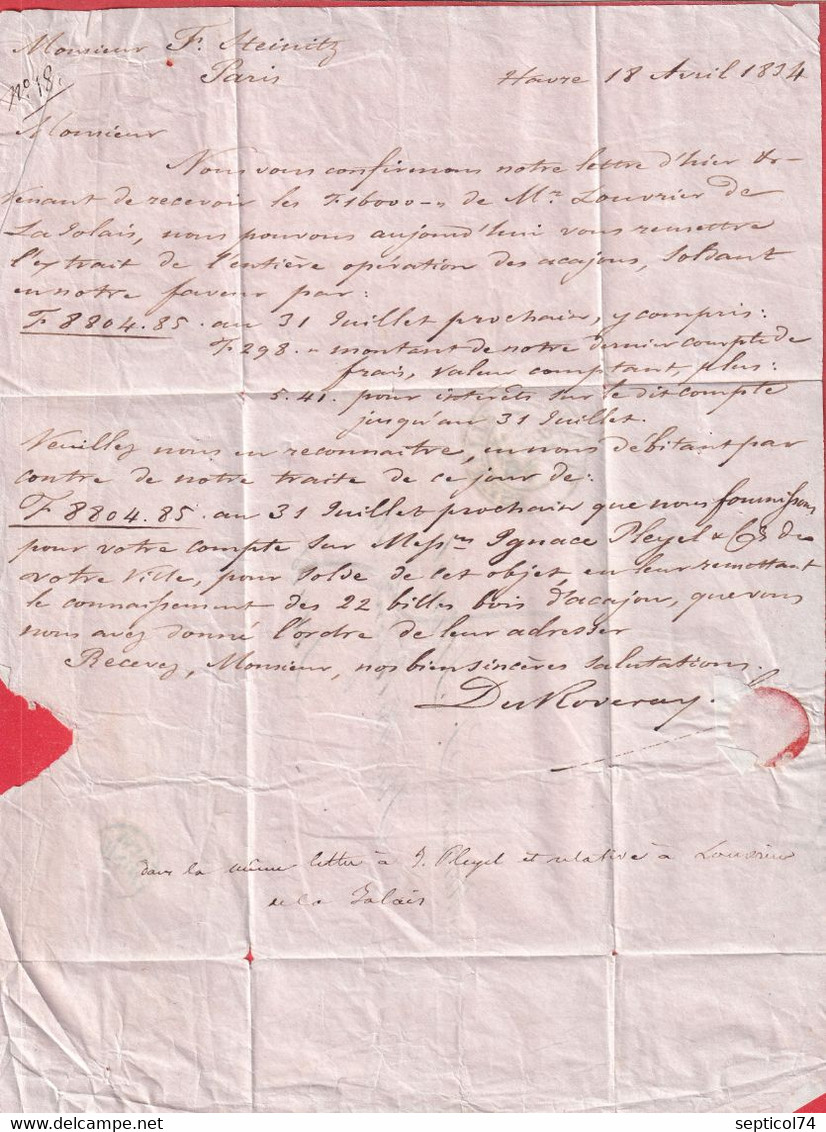 Monsieur F. Steinitz
Paris
Havre 18 Avril 1834
N° 18.
Monsieur
Nous vous confirmons notre lettre d'hier &
venant de recevoir les F 16000 - de Mr. Louvrier de
La Jolais, nous pouvons aujourd'hui vous remettre
l'extrait de l'entière opération des acajous, soldant
en notre faveur par:
F 8804.85. au 31 Juillet prochain, y compris:
F 298. - montant de notre dernier compte de
frais, valeur comptant, plus:
5.41. pour intérêts sur le dit compte
jusqu'au 31 Juillet.
Veuillez nous en reconnaître, en nous débitant par
contre de notre traite de ce jour de:
F 8804.85. au 31 Juillet prochain que nous fournissons
pour votre compte sur Messrs Ignace Pleyel & Ce de
votre Ville, pour solde de cet objet en leur remettant
le connaissement des 22 billes bois d'acajou, que vous
nous avez donné l'ordre de leur adresser
Recevez, Monsieur, nos bien sincères salutations.
DuRoveray
dans la même lettre à J. Pleyel et relative à Louvrier
de la Jolais
septicol74